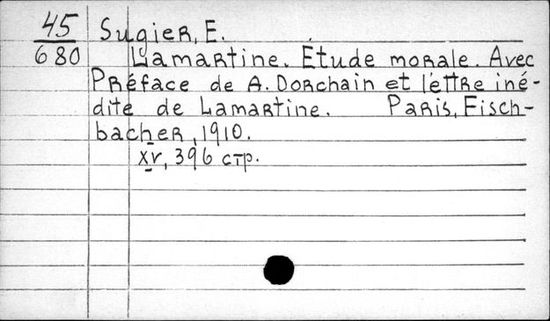 45 Sugier, E.
680 Lamartine. Étude morale. Avec
Préface de A. Dorchain et lettre iné-
dite de Lamartine. Paris, Fisch-
bacher, 1910.
XV, 396 стр.